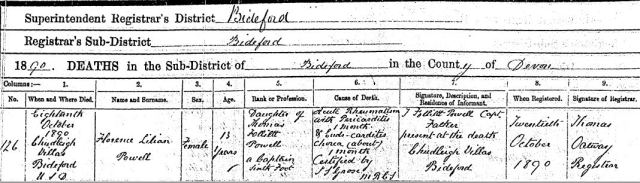 Superintendent Registrar's District Bideford
Registrar's Sub-District Bideford
1890. DEATHS in the Sub-District of Bideford in the County of Devon
Columns:— 1. 2. 3. 4. 5. 6. 7. 8. 9.
No. When and Where Died. Name and Surname. Sex. Age. Rank or Profession. Cause of Death. Signature, Description, and Residence of Informant. When Registered. Signature of Registrar.
126
Eighteenth
October
1890
Chudleigh
Villas
Bideford
U S D
Florence Lilian
Powell
Female
13
Years
Daughter of
Follett
Powell
a Captain
Sixth Foot
Acute Rheumatism
with Pericarditis
1 month
& Endo-carditis
Chorea (about)
1 month
Certified by
MRCS
J Follett Powell Capt
Father
present at the death
Chudleigh Villas
Bideford
Twentieth
October
1890
Thomas
Oatway
Registrar